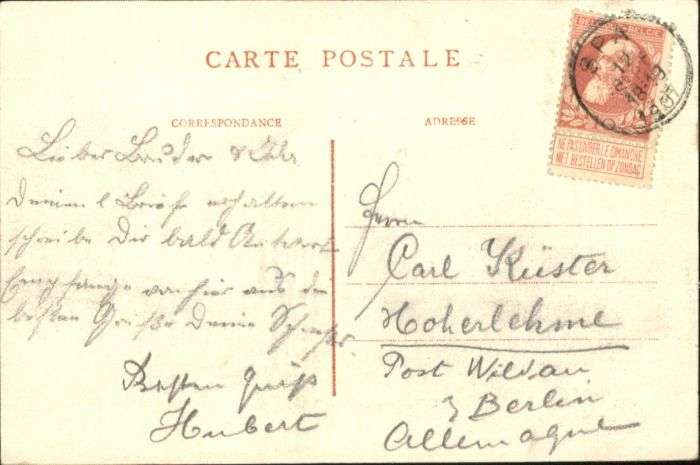 CARTE POSTALE
CORRESPONDANCE
ADRESSE
NE PAS LIVRER LE DIMANCHE
NIET BESTELLEN OP ZONDAG
SPA
1907
Lieber Bruder &
Deinen l Brief erhalten
schreibe Dir bald Antwort
Empfange von hier aus die
besten Grüße Deine Schwester
Besten Gruß
Hubert
Herrn
Carl Küster
Hoherlehme
Post Wildau
b/ Berlin
Allemagne